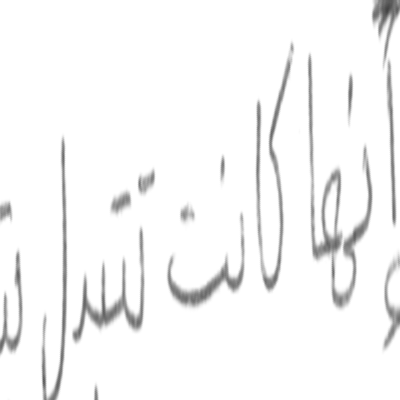 أنها كانت تتبدل